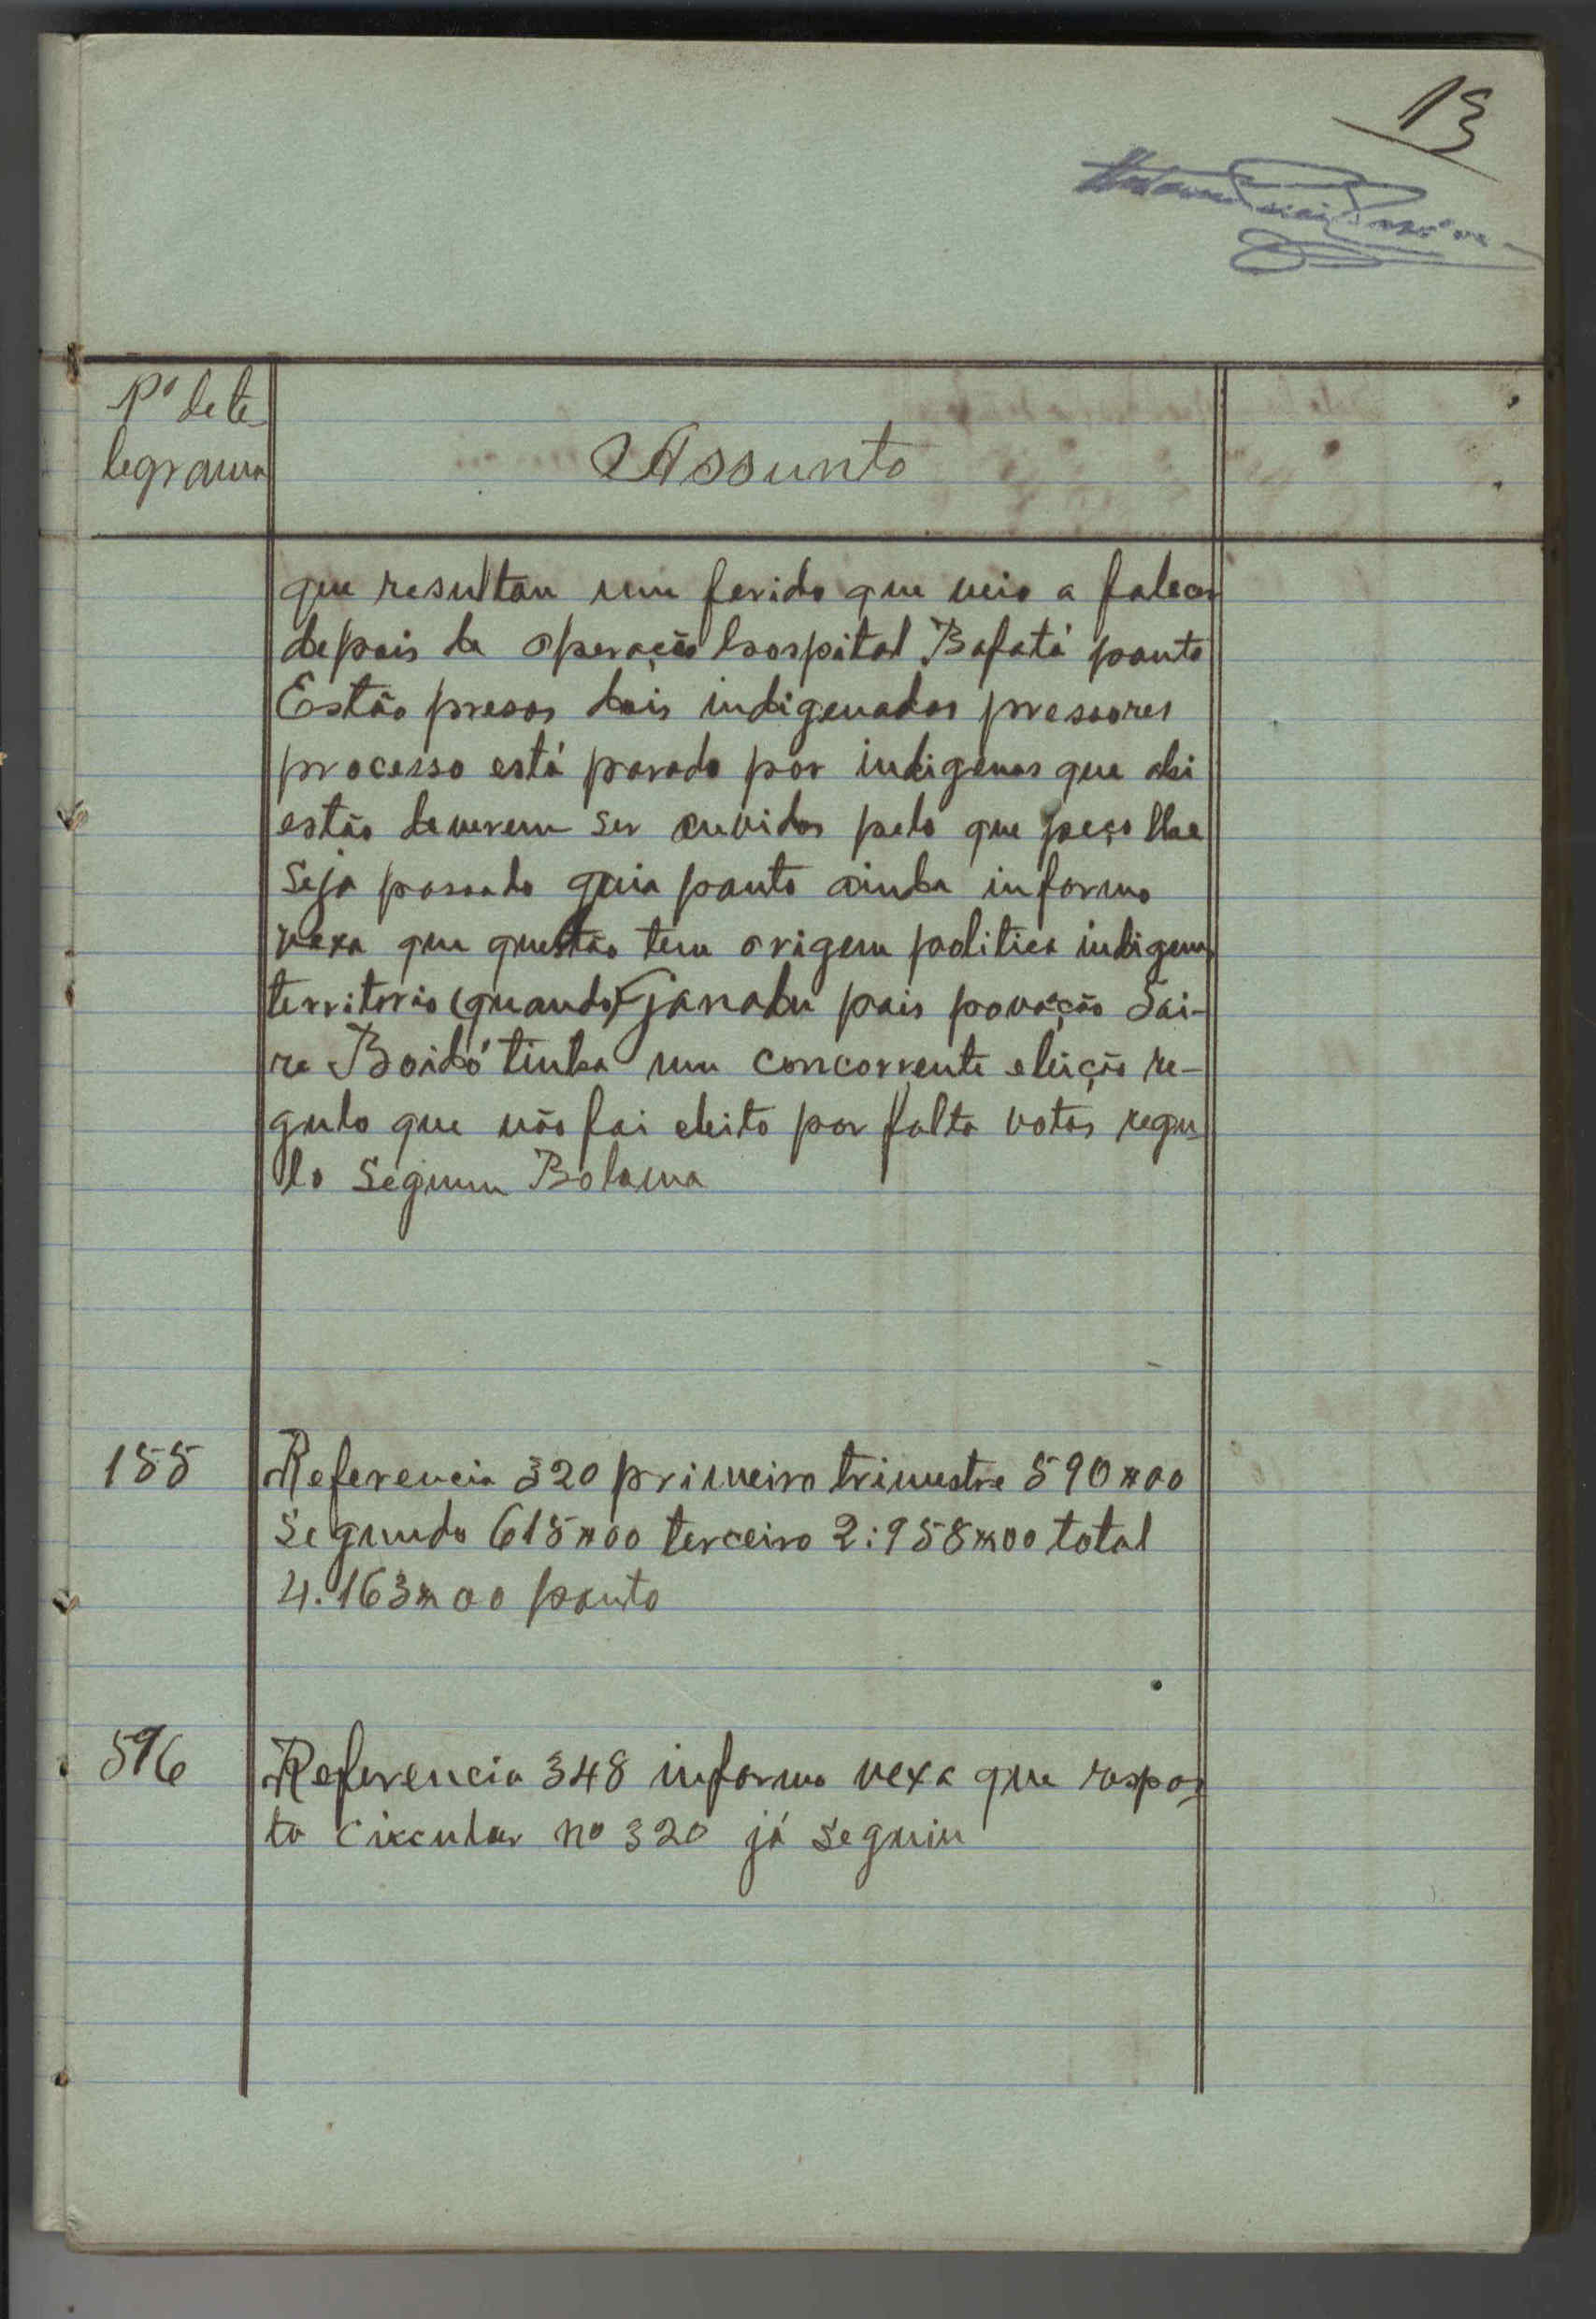 13
Nº de te
legrama
Assunto
que resultou um ferido que veio a falecer
depois de operação hospital Bafatá ponto
Estão presos dois indigenados pressores
processo está parado por indigenas que ahi
estão deverem ser ouvidos pelo que peço lhe
seja passado guia ponto ainda informo
vexa que questão tem origem politica indigena
territorio (quando) Ganadu pois povoação Sai-
re Boidó tinha um concorrente eleição re-
gulo que não foi eleito por falta votos regu-
lo Segunu Bolama
155
Referencia 320 primeiro trimestre 590$00
segundo 615$00 terceiro 2:958$00 total
4.163$00 ponto
596
Referencia 348 informo vexa que respos-
ta circular nº 320 já seguiu